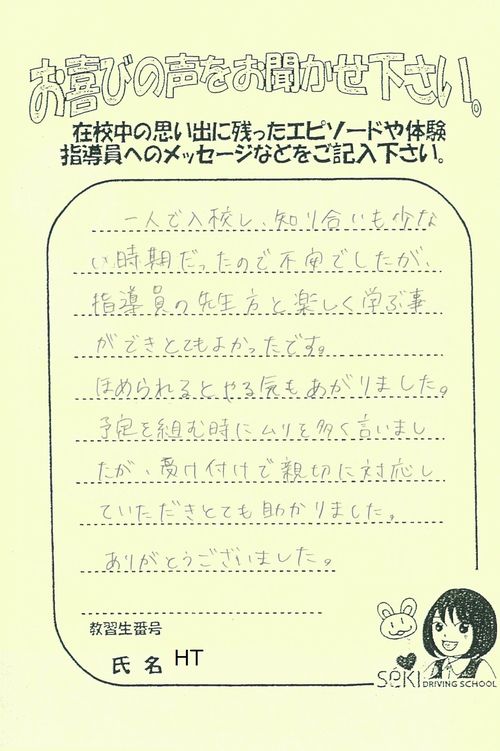 お喜びの声をお聞かせ下さい。
在校中の思い出に残ったエピソードや体験
指導員へのメッセージなどをご記入下さい。
一人で入校し、知り合いも少な
い時期だったので不安でしたが、
指導員の先生方と楽しく学ぶ事
ができとてもよかったです。
ほめられるとやる気もあがりました。
予定を組む時にムリを多く言いまし
たが、受け付けで親切に対応し
ていただきとても助かりました。
ありがとうございました。
教習生番号
氏名 HT
SEKI DRIVING SCHOOL